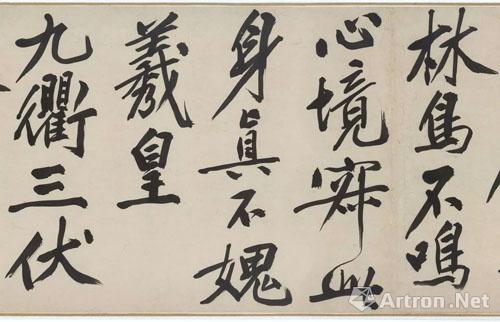 林鳥不鳴
心境寂此
身眞不媿
羲皇
九衢三伏
Artron.Net